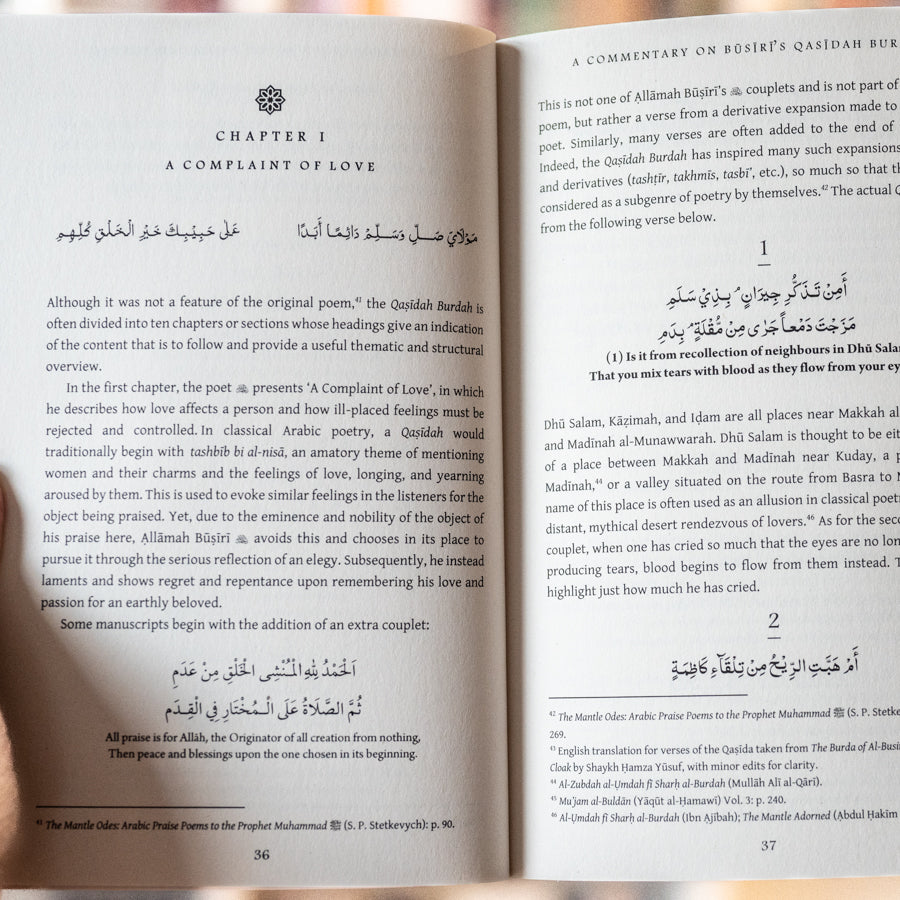 CHAPTER I
A COMPLAINT OF LOVE
مَوْلَايَ صَلِّ وَسَلِّمْ دَائِمًا أَبَدًا عَلٰى حَبِيْبِكَ خَيْرِ الْخَلْقِ كُلِّهِمِ
Although it was not a feature of the original poem,⁴¹ the Qaṣīdah Burdah is
often divided into ten chapters or sections whose headings give an indication
of the content that is to follow and provide a useful thematic and structural
overview.
In the first chapter, the poet presents ‘A Complaint of Love’, in which
he describes how love affects a person and how ill-placed feelings must be
rejected and controlled. In classical Arabic poetry, a Qaṣīdah would
traditionally begin with tashbīb bi al-nisā, an amatory theme of mentioning
women and their charms and the feelings of love, longing, and yearning
aroused by them. This is used to evoke similar feelings in the listeners for the
object being praised. Yet, due to the eminence and nobility of the object of
his praise here, Ạllāmah Būṣīrī avoids this and chooses in its place to
pursue it through the serious reflection of an elegy. Subsequently, he instead
laments and shows regret and repentance upon remembering his love and
passion for an earthly beloved.
Some manuscripts begin with the addition of an extra couplet:
اَلْحَمْدُ لِلّٰهِ الْمُنْشِي الْخَلْقِ مِنْ عَدَمِ
ثُمَّ الصَّلَاةُ عَلَى الْمُخْتَارِ فِي الْقِدَمِ
All praise is for Allāh, the Originator of all creation from nothing,
Then peace and blessings upon the one chosen in its beginning.
⁴¹ The Mantle Odes: Arabic Praise Poems to the Prophet Muhammad ﷺ (S. P. Stetkevych): p. 90.
36
A COMMENTARY ON BŪṢĪRĪ’S QASĪDAH BUR
This is not one of Ạllāmah Būṣīrī’s couplets and is not part of
poem, but rather a verse from a derivative expansion made to
poet. Similarly, many verses are often added to the end of
Indeed, the Qaṣīdah Burdah has inspired many such expansions
and derivatives (tashṭīr, takhmīs, tasbī’, etc.), so much so that
considered as a subgenre of poetry by themselves.⁴² The actual
from the following verse below.
1
أَمِنْ تَذَكُّرِ جِيرَانٍ بِذِيْ سَلَمِ
مَزَجْتَ دَمْعاً جَرٰى مِنْ مُّقْلَةٍ بِدَمِ
(1) Is it from recollection of neighbours in Dhū Sala
That you mix tears with blood as they flow from your ey
Dhū Salam, Kāẓimah, and Iḍam are all places near Makkah al
and Madīnah al-Munawwarah. Dhū Salam is thought to be
of a place between Makkah and Madīnah near Kuday, a
Madīnah,⁴⁴ or a valley situated on the route from Basra to
name of this place is often used as an allusion in classical
distant, mythical desert rendezvous of lovers.⁴⁶ As for the
couplet, when one has cried so much that the eyes are no
producing tears, blood begins to flow from them instead.
highlight just how much he has cried.
2
أَمْ هَبَّتِ الرِّيْحُ مِنْ تِلْقَآءِ كَاظِمَةٍ
⁴² The Mantle Odes: Arabic Praise Poems to the Prophet Muhammad ﷺ (S. P. Stetke
269.
⁴³ English translation for verses of the Qaṣīda taken from The Burda of Al-Busi
Cloak by Shaykh Ḥamza Yūsuf, with minor edits for clarity.
⁴⁴ Al-Zubdah al-Ụmdah fī Sharḥ al-Burdah (Mullāh Alī al-Qārī).
⁴⁵ Mu’jam al-Buldān (Yāqūt al-Ḥamawī) Vol. 3: p. 240.
⁴⁶ Al-Ụmdah fī Sharḥ al-Burdah (Ibn Ạjībah); The Mantle Adorned (Ạbdul Ḥakīm
37